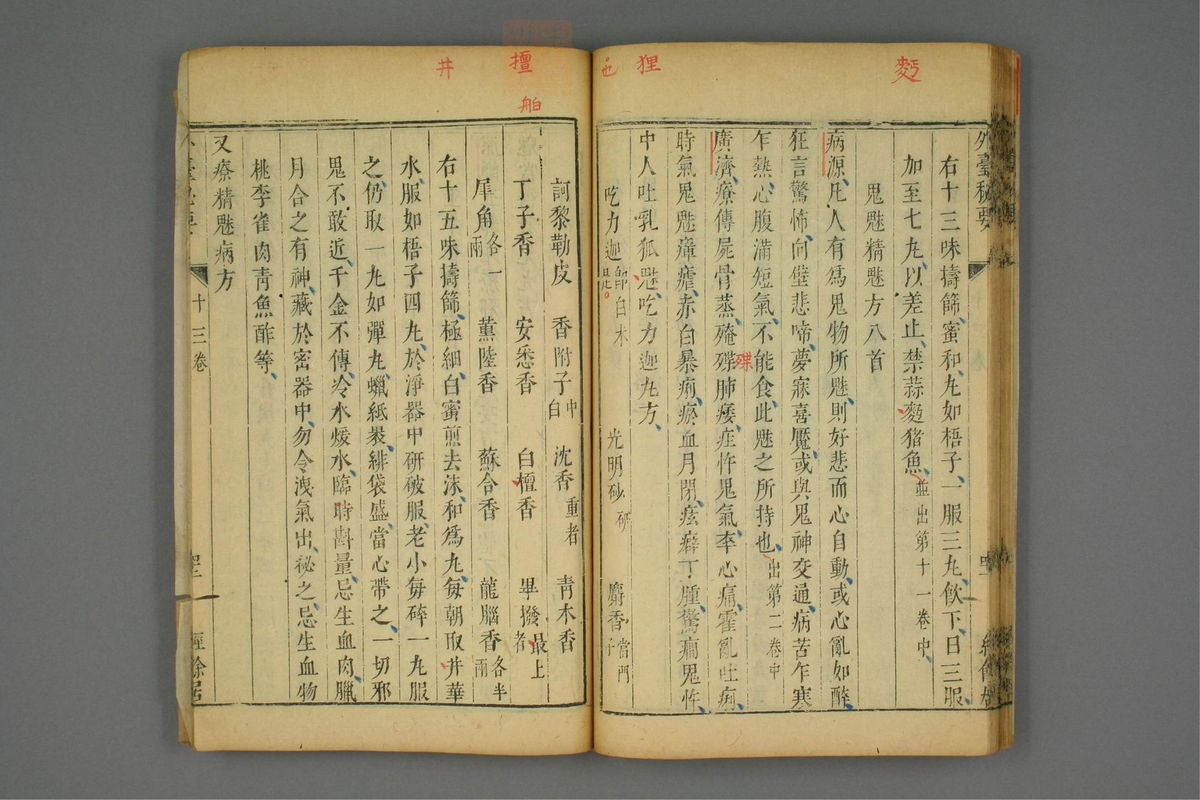 麫
狸
也
外臺秘要
右十三味擣篩蜜和丸如梧子一服三丸飲下日三服
加至七丸以差止禁蒜麫猪魚並出第十一卷中
鬼魅精魅方八首
病源凡人有為鬼物所魅則好悲而心自動或心亂如醉
狂言驚怖向壁悲啼夢寐喜魘或與鬼神交通病苦乍寒
乍熱心腹滿短氣不能食此魅之所持也出第二卷中
殜
廣濟療傳屍骨蒸殗殜肺痿疰忤鬼氣卒心痛霍亂吐痢
時氣鬼魅瘴瘧赤白暴痢瘀血月閉痃癖丁腫驚癎鬼忤
中人吐乳狐魅吃力迦丸方
吃力迦即白朮是 光明砂研 麝香當門子
擅
舶
井
訶黎勒皮 香附子中白 沈香重者 青木香
丁子香 安悉香 白檀香 畢撥最上者
犀角各一兩 薰陸香 蘇合香 龍腦香各半兩
右十五味擣篩極細白蜜煎去沫和為丸每朝取井華
水服如梧子四丸於淨器中研破服老小每碎一丸服
之仍取一丸如彈丸蠟紙褁緋袋盛當心帶之一切邪
鬼不敢近千金不傳冷水煖水臨時斟量忌生血肉臘
月合之有神藏於密器中勿令洩氣出祕之忌生血物
桃李雀肉青魚酢等
又療精魅病方
十三卷
經餘居